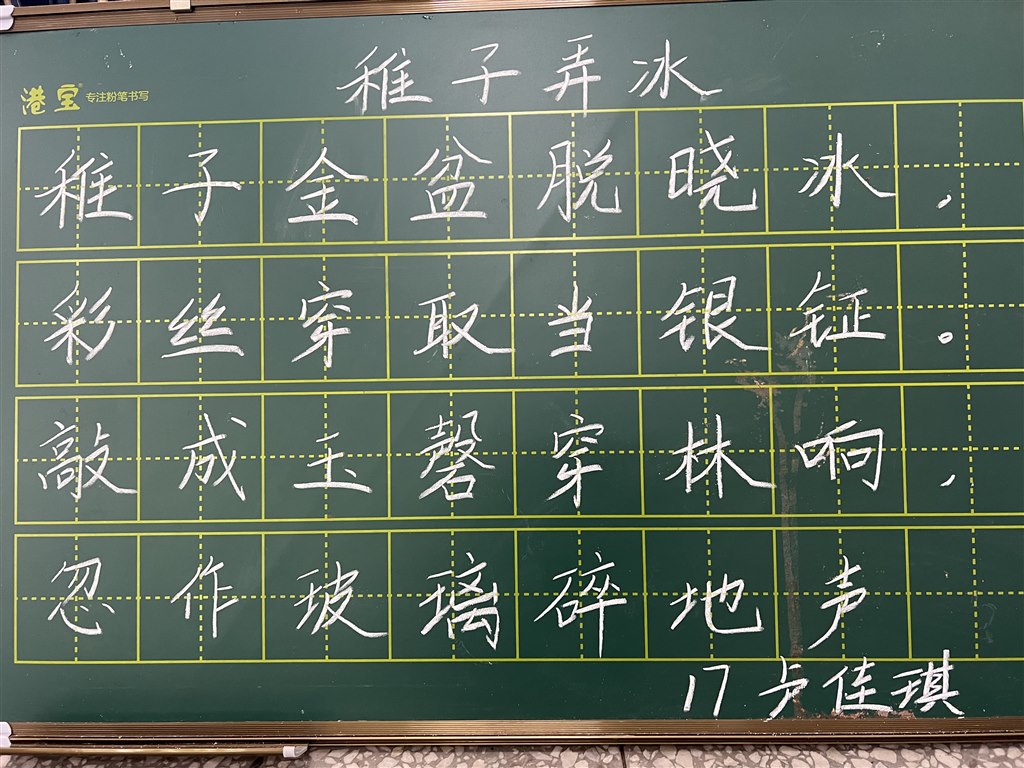 稚子弄冰
港宝® 专注粉笔书写
稚子金盆脱晓冰，
彩丝穿取当银钲。
敲成玉磬穿林响，
忽作玻璃碎地声
17卢佳琪